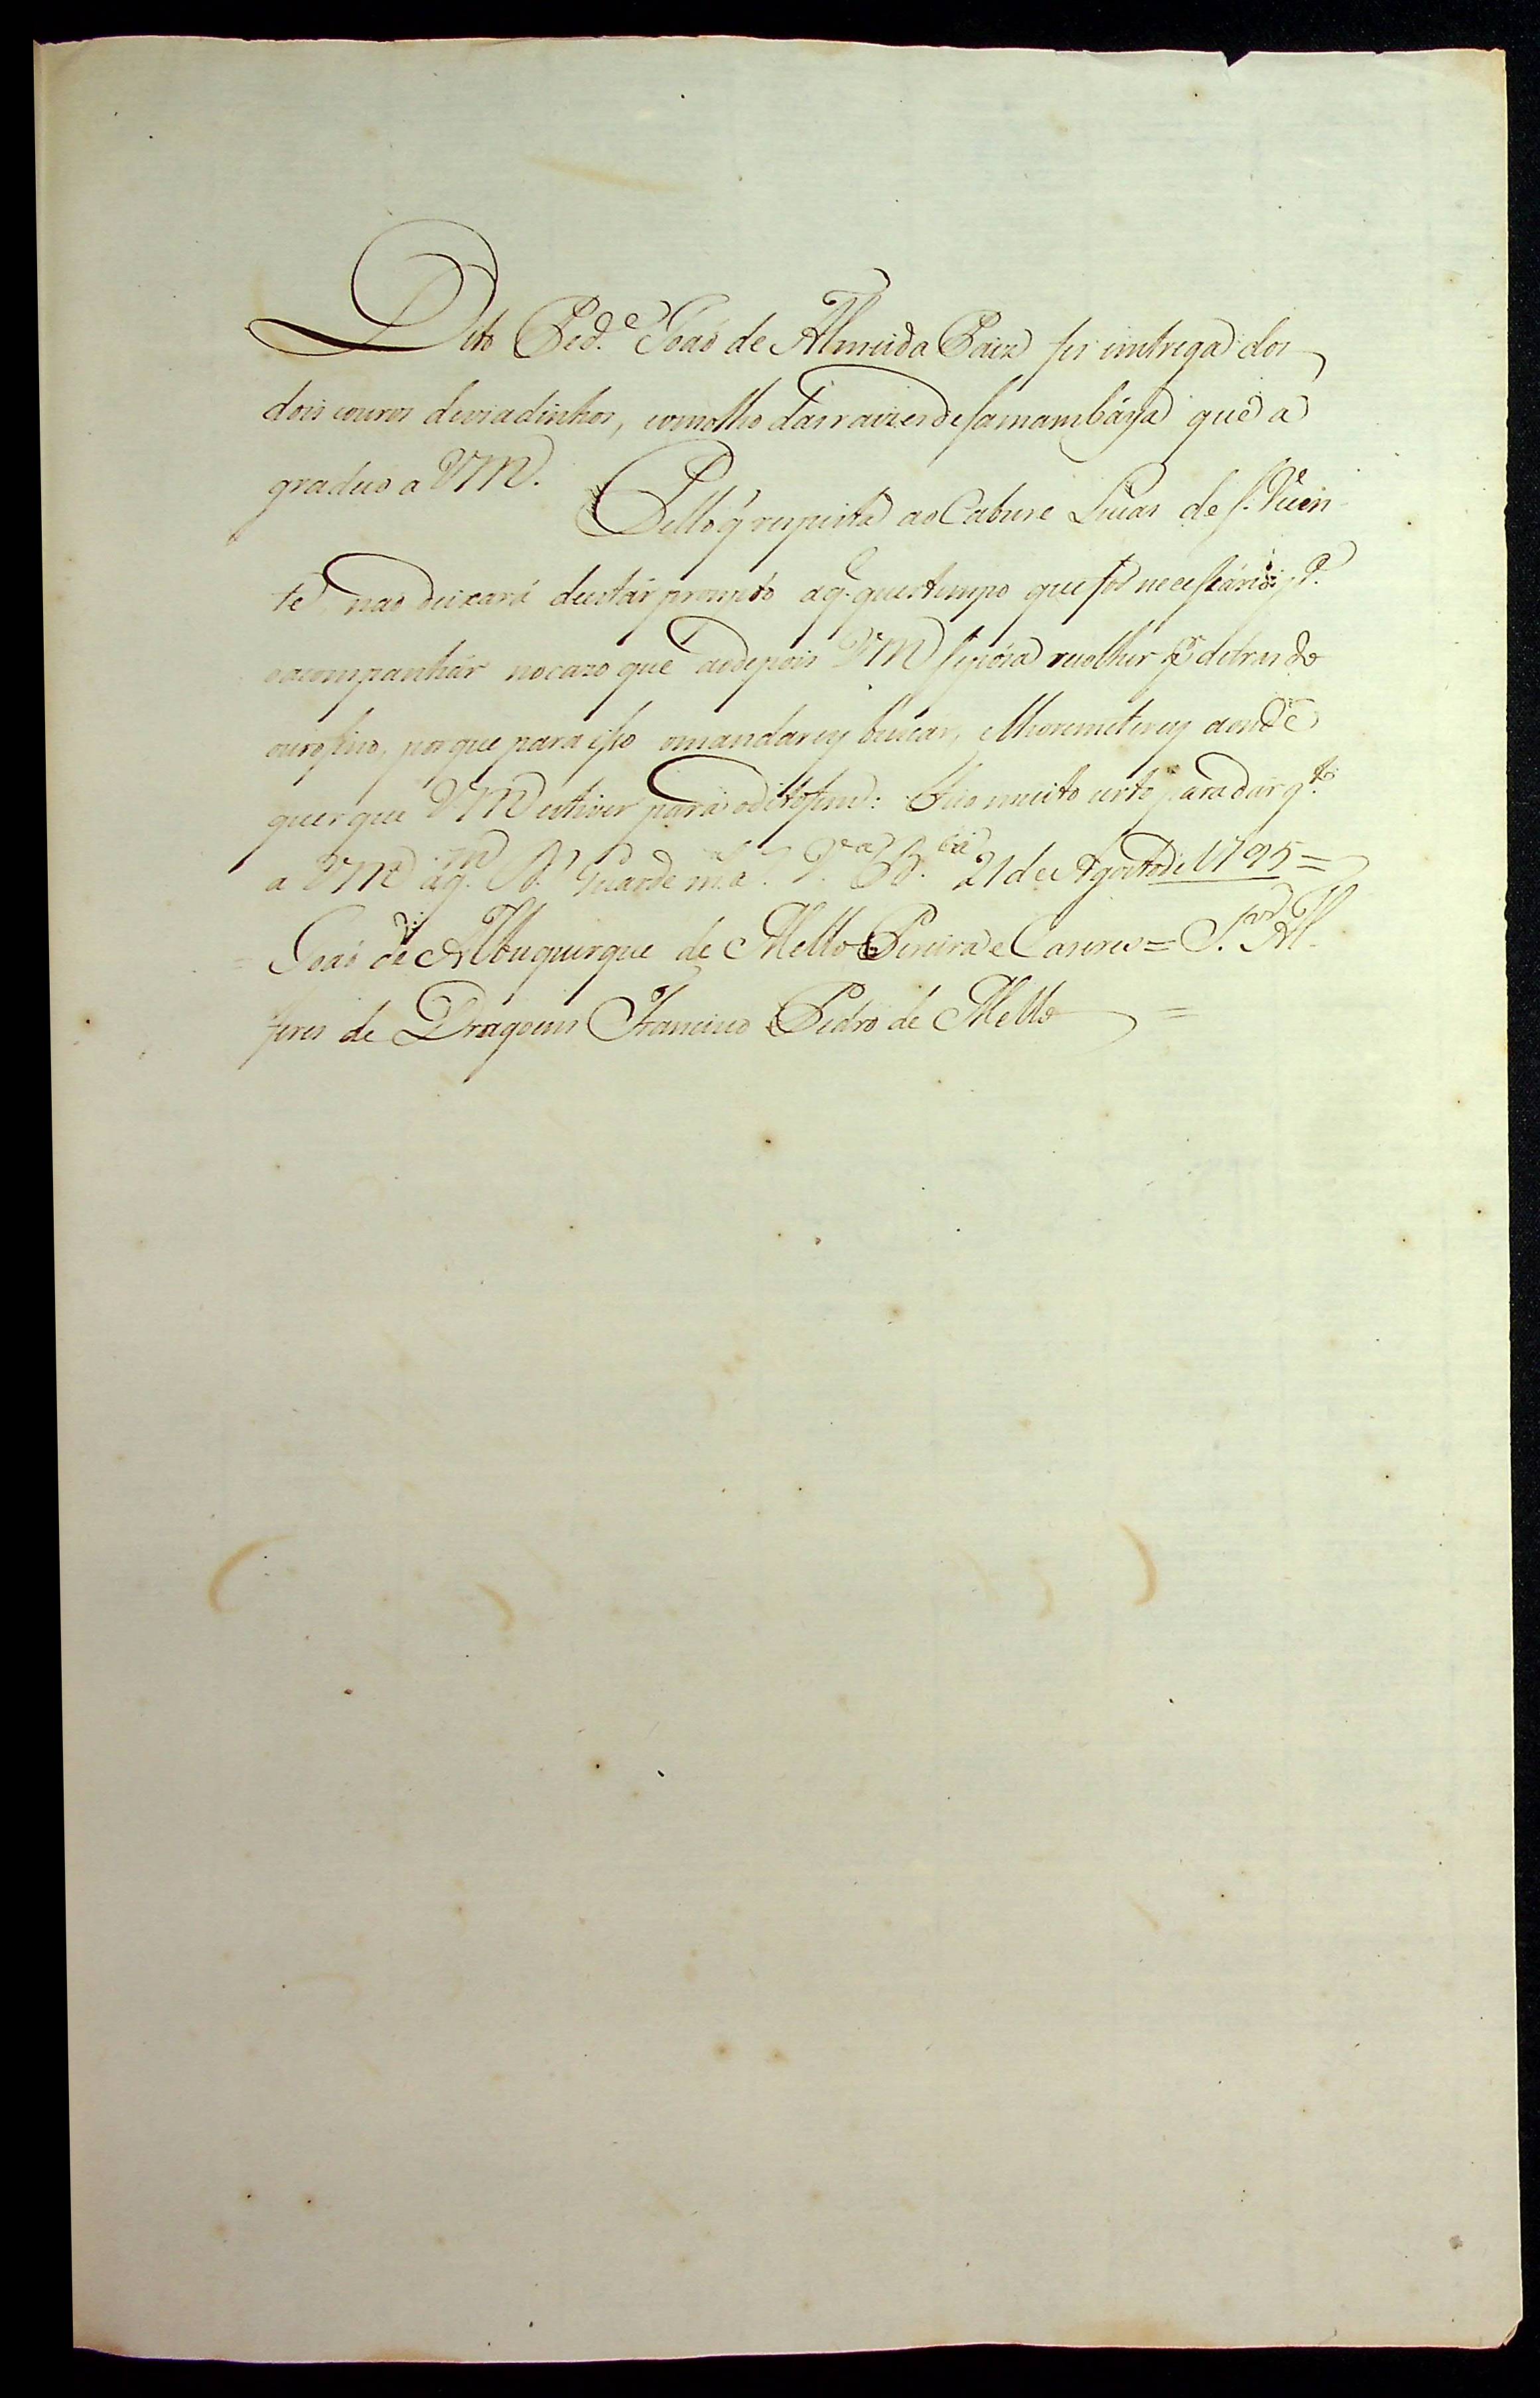 Dito Ped.e Joaõ de Almeida Paez fes emtrega dos
dois couros deviadinhos, eomolho das raizes de samambáya que a
gradeço a VM.
Pello q respeita ao Cabure Lucas de S. Vicen-
te, nao deixará deestár prompto aq. quer tempo que for necessário, p.a
oacompanhár nocazo que aodepois VM sepósa recolher p detras do
ourofino, porque para isso omandarey buscar, elhoremeterey aonde
quer que VM estiver para o ditofim: Fico muito certo para dar g.to
a VM aq.m D.s Guarde m.s a.s V.a B.a 21 de Agosto de 1795 =
= Joaõ de Albuquerque de Mello Pereira e Caseres = S.or Al-
feres de Dragoens Francisco Pedro de Mello =